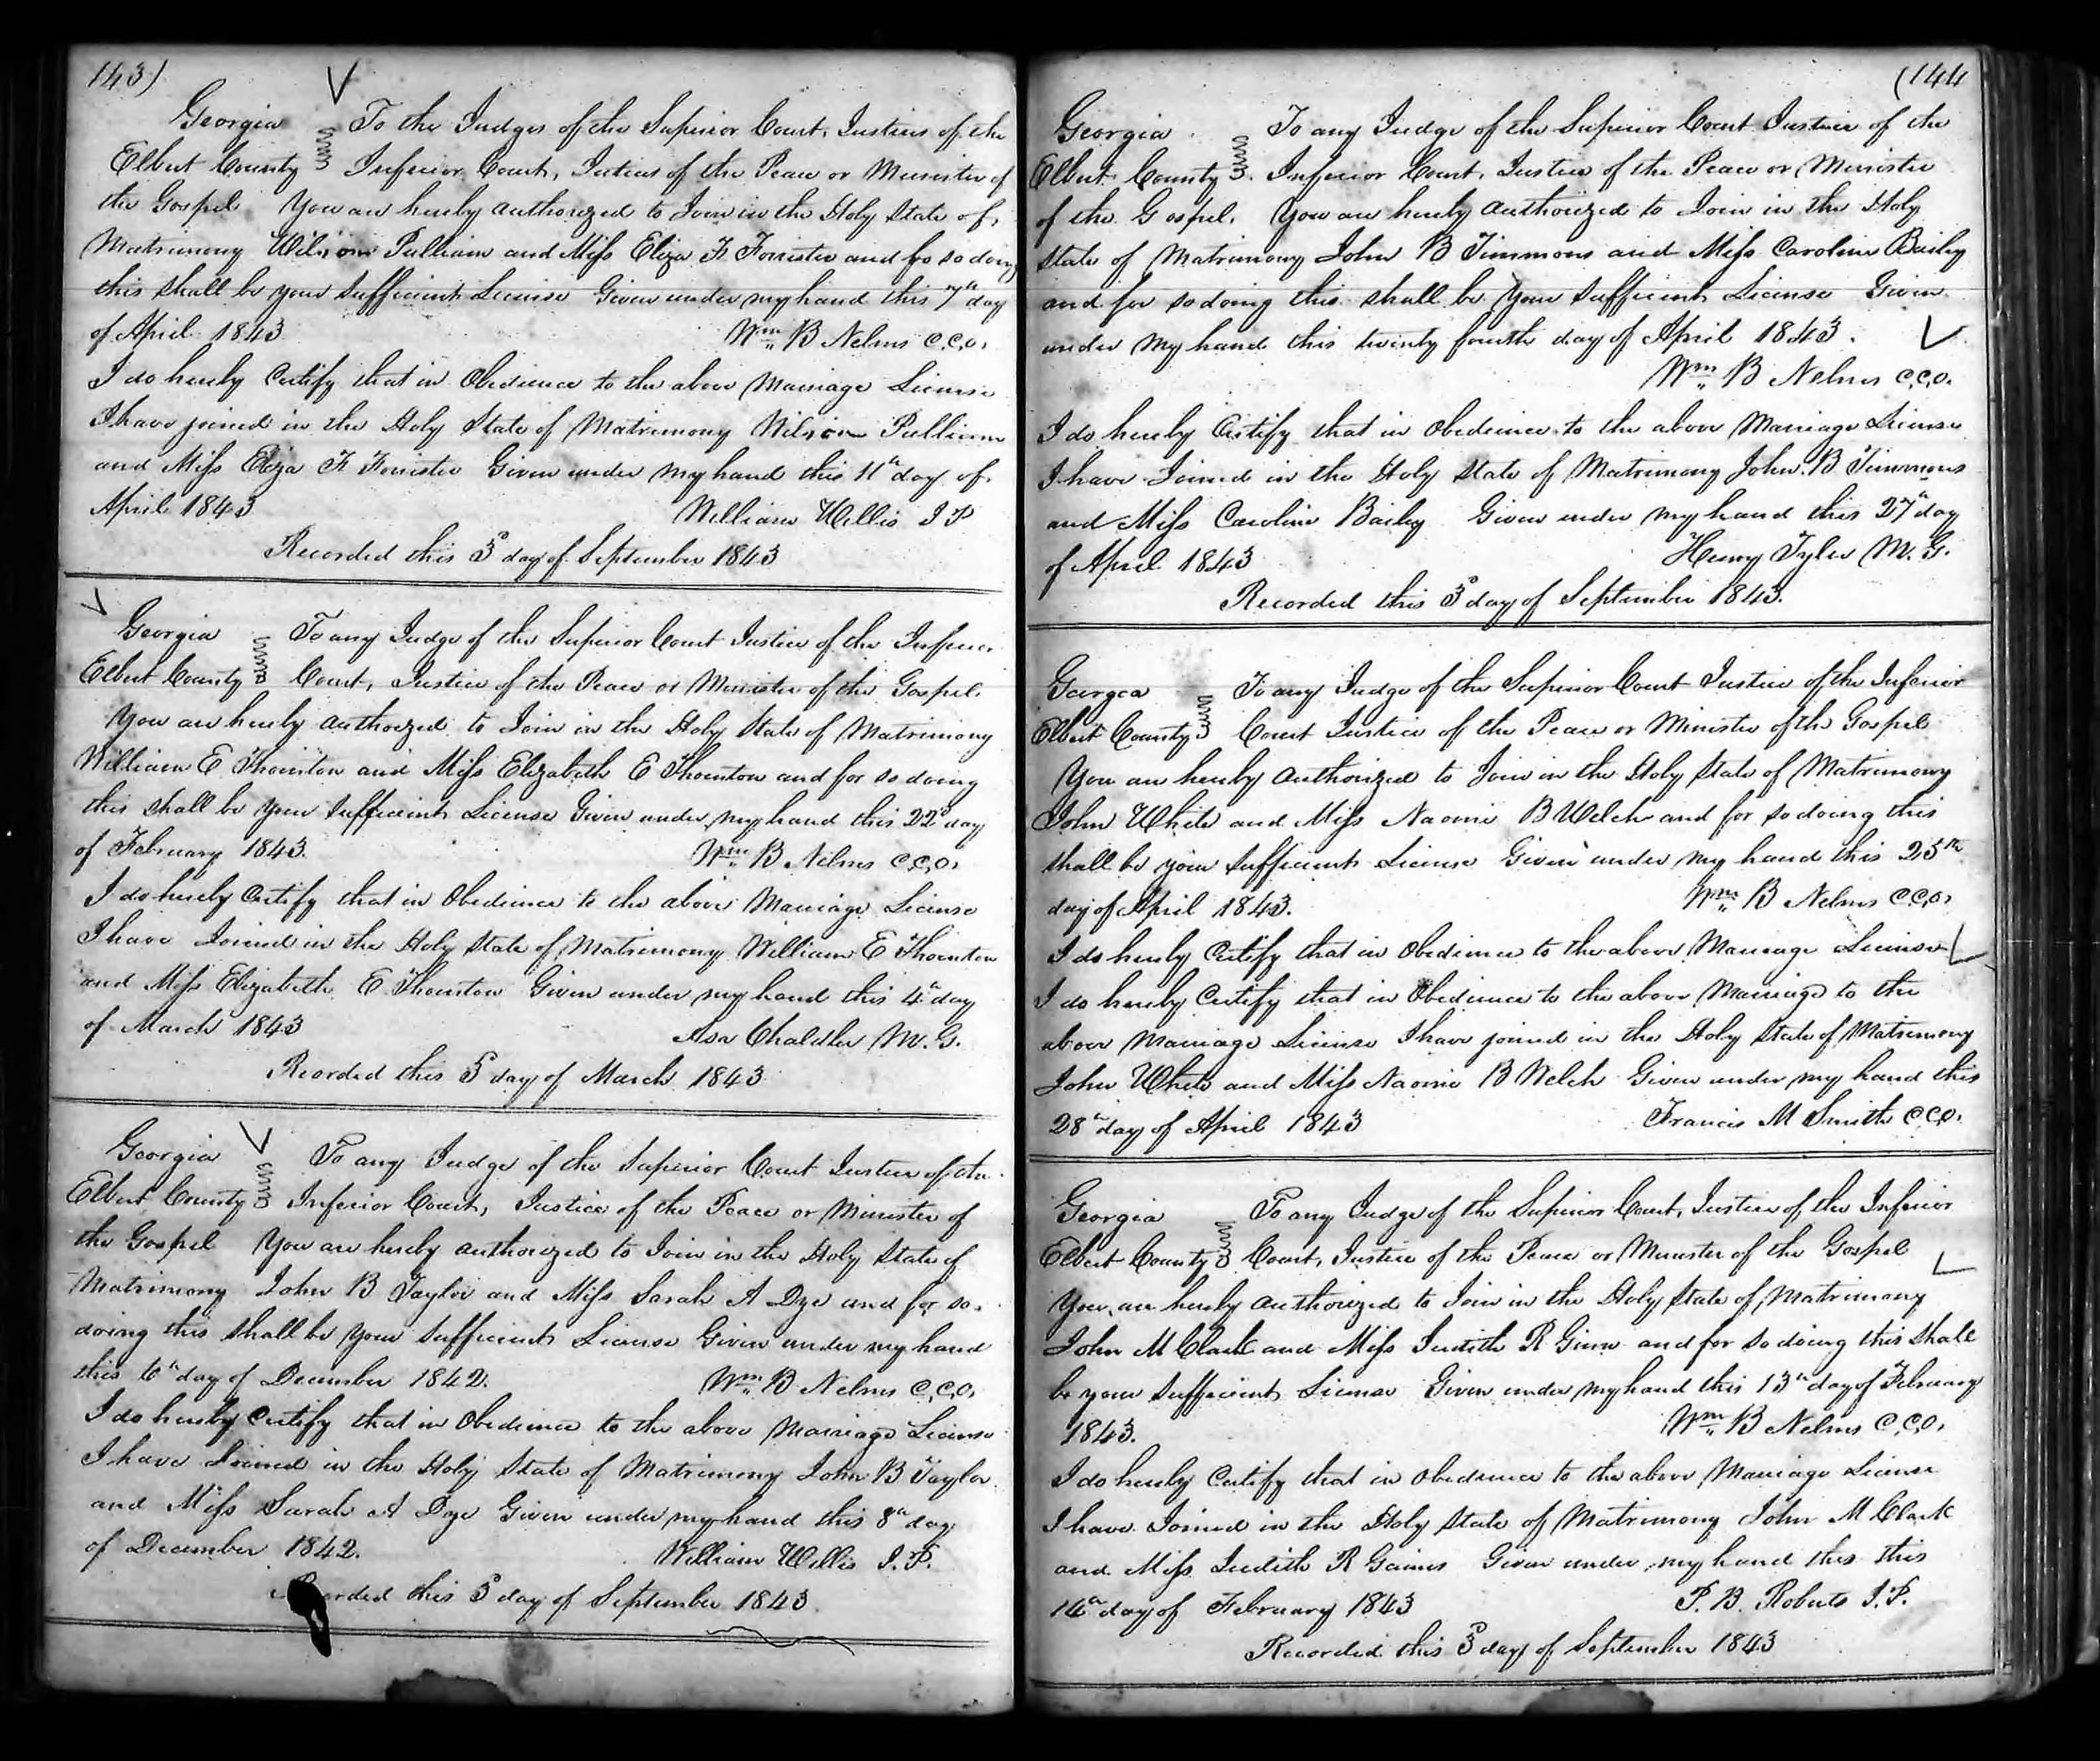 143)
Georgia To the Judges of the Superior Court, Justices of the
Elbert County Inferior Court, Justices of the Peace or Minister of
the Gospel You are hereby authorized to Join in the Holy State of
Matrimony Wilson Pulliam and Miss Eliza F Forrister and for so doing
this shall be your sufficient License Given under my hand this 7th day
of April 1843 Wm B Nelms C.C.O.
I do hereby Certify that in Obedience to the above Marriage License
I have joined in the Holy State of Matrimony Wilson Pulliam
and Miss Eliza F Forrister Given under my hand this 11th day of
April 1843 William Willis J P
Recorded this 3d day of September 1843
Georgia To any Judge of the Superior Court Justice of the Inferior
Elbert County Court, Justice of the Peace or Minister of the Gospel.
You are hereby authorized to Join in the Holy State of Matrimony
William E Thornton and Miss Elizabeth E Thornton and for so doing
this shall be your sufficient License Given under my hand this 22d day
of February 1843. Wm B Nelms C.C.O.
I do hereby Certify that in Obedience to the above Marriage License
I have Joined in the Holy State of Matrimony William E Thornton
and Miss Elizabeth E Thornton Given under my hand this 4th day
of March 1843 Asa Chandler M.G.
Recorded this 5 day of March 1843
Georgia To any Judge of the Superior Court Justice of the
Elbert County Inferior Court, Justice of the Peace or Minister of
the Gospel You are hereby authorized to Join in the Holy State of
Matrimony John B Taylor and Miss Sarah A Dye and for so
doing this shall be your sufficient License Given under my hand
this 6th day of December 1842. Wm B Nelms C.C.O.
I do hereby Certify that in Obedience to the above Marriage License
I have Joined in the Holy State of Matrimony John B Taylor
and Miss Sarah A Dye Given under my hand this 8th day
of December 1842. William Willis J.P.
Recorded this 3d day of September 1843
(144
Georgia To any Judge of the Superior Court Justice of the
Elbert County Inferior Court, Justice of the Peace or Minister
of the Gospel. You are hereby authorized to Join in the Holy
State of Matrimony John B Timmons and Miss Caroline Bailey
and for so doing this shall be your sufficient License Given
under my hand this twenty fourth day of April 1843.
Wm B Nelms C.C.O.
I do hereby Certify that in Obedience to the above Marriage License
I have Joined in the Holy State of Matrimony John B Timmons
and Miss Caroline Bailey Given under my hand this 27th day
of April 1843 Henry Tyler M.G.
Recorded this 3d day of September 1843.
Georgia To any Judge of the Superior Court Justice of the Inferior
Elbert County Court Justice of the Peace or Minister of the Gospel
You are hereby authorized to Join in the Holy State of Matrimony
John White and Miss Naomi B Welch and for so doing this
shall be your sufficient License Given under my hand this 25th
day of April 1843. Wm B Nelms C.C.O.
I do hereby Certify that in Obedience to the above Marriage License
I do hereby Certify that in Obedience to the above Marriage to the
above Marriage License I have joined in the Holy State of Matrimony
John White and Miss Naomi B Welch Given under my hand this
28th day of April 1843 Francis M Smith C.C.O.
Georgia To any Judge of the Superior Court, Justice of the Inferior
Elbert County Court, Justice of the Peace or Minister of the Gospel
You are hereby authorized to Join in the Holy State of Matrimony
John M Clark and Miss Judith R Ginn and for so doing this shall
be your sufficient License Given under my hand this 13th day of February
1843. Wm B Nelms C.C.O.
I do hereby Certify that in Obedience to the above Marriage License
I have Joined in the Holy State of Matrimony John M Clark
and Miss Judith R Gaines Given under my hand this this
14th day of February 1843 P. B. Roberts J.P.
Recorded this 3d day of September 1843